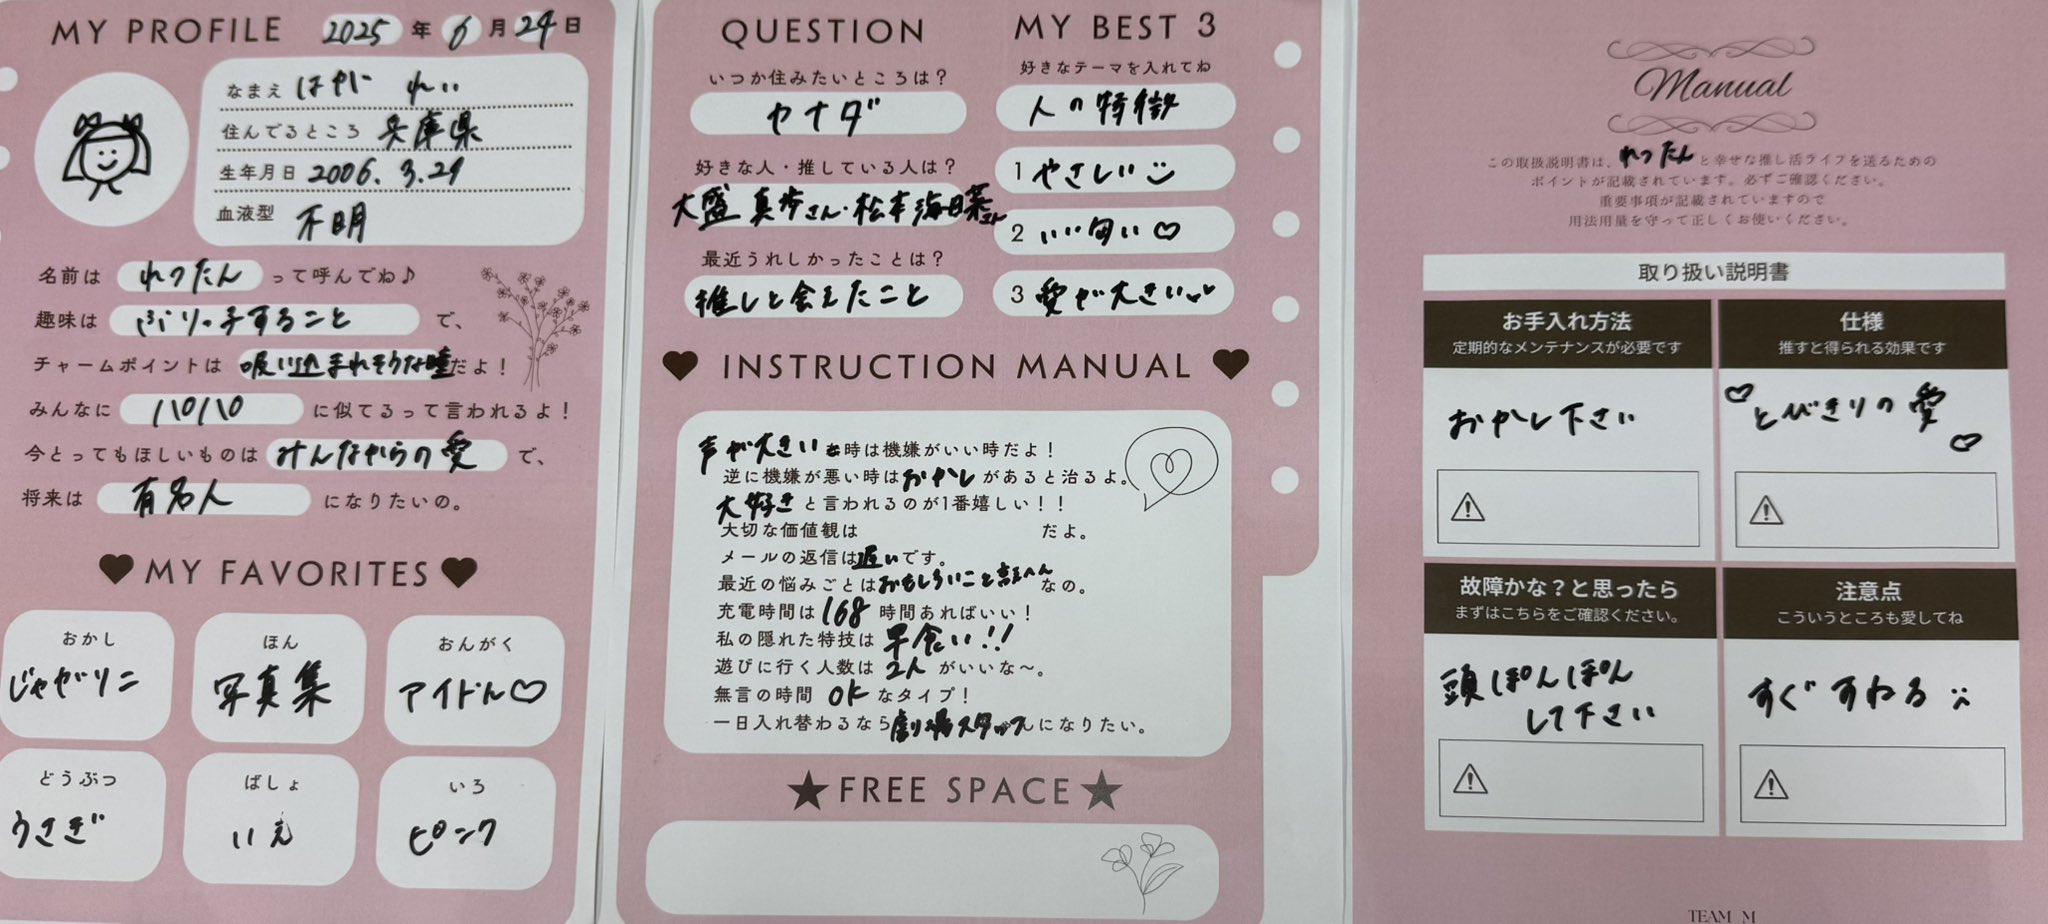 MY PROFILE 2025年6月24日
なまえ はやに れい
住んでるところ 兵庫県
生年月日 2006. 3.29
血液型 不明
名前は れったん って呼んでね♪
趣味は ぶりっ子すること で、
チャームポイントは 吸い込まれそうな瞳だよ！
みんなに パロパロ に似てるって言われるよ！
今とってもほしいものは みんなからの愛 で、
将来は 有名人 になりたいの。
♥ MY FAVORITES ♥
おかし
じゃがりこ
ほん
写真集
おんがく
アイドル♡
どうぶつ
うさぎ
ばしょ
いえ
いろ
ピンク
QUESTION
いつか住みたいところは？
カナダ
好きな人・推している人は？
大盛 真歩さん・松本 海日菜さん
最近うれしかったことは？
推しと会えたこと
MY BEST 3
好きなテーマを入れてね
人の特徴
1 やさしい
2 いい匂い♡
3 愛が大きい
♥ INSTRUCTION MANUAL ♥
声が大きい時は機嫌がいい時だよ！
逆に機嫌が悪い時はおかしがあると治るよ。
大好きと言われるのが1番嬉しい！！
大切な価値観は だよ。
メールの返信は遅いです。
最近の悩みごとはおもしろいこと言えへんなの。
充電時間は168時間あればいい！
私の隠れた特技は早食い!!
遊びに行く人数は2人がいいな〜。
無言の時間OKなタイプ！
一日入れ替わるなら劇場スタッフになりたい。
★FREE SPACE★
Manual
この取扱説明書は、れったんと幸せな推し活ライフを送るための
ポイントが記載されています。必ずご確認ください。
重要事項が記載されていますので
用法用量を守って正しくお使いください。
取り扱い説明書
お手入れ方法
定期的なメンテナンスが必要です
おかし下さい
仕様
推すと得られる効果です
♡とびきりの愛♡
故障かな？と思ったら
まずはこちらをご確認ください。
頭ぽんぽん
して下さい
注意点
こういうところも愛してね
すぐすねる
TEAM M